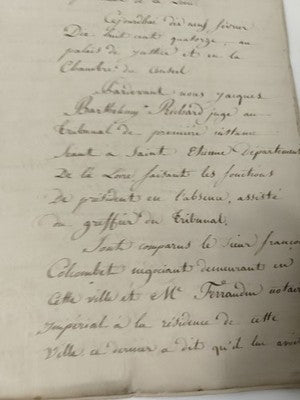 de la Loire
Cejourdhui dix neuf février
Dix huit cent quatorze, au
palais de Justice et en la
Chambre du Conseil
Pardevant nous Jacques
Barthelemy Robard juge au
tribunal de première instance
Séant à Saint Etienne Département
De la Loire faisant les fonctions
De président en l'absence, assisté
du greffier du Tribunal.
Sont comparus le sieur françois
Colombet négociant demeurant en
Cette ville et Me Ferrandin notaire
impérial à la résidence de cette
Ville ce dernier a dit qu'il lui avoit